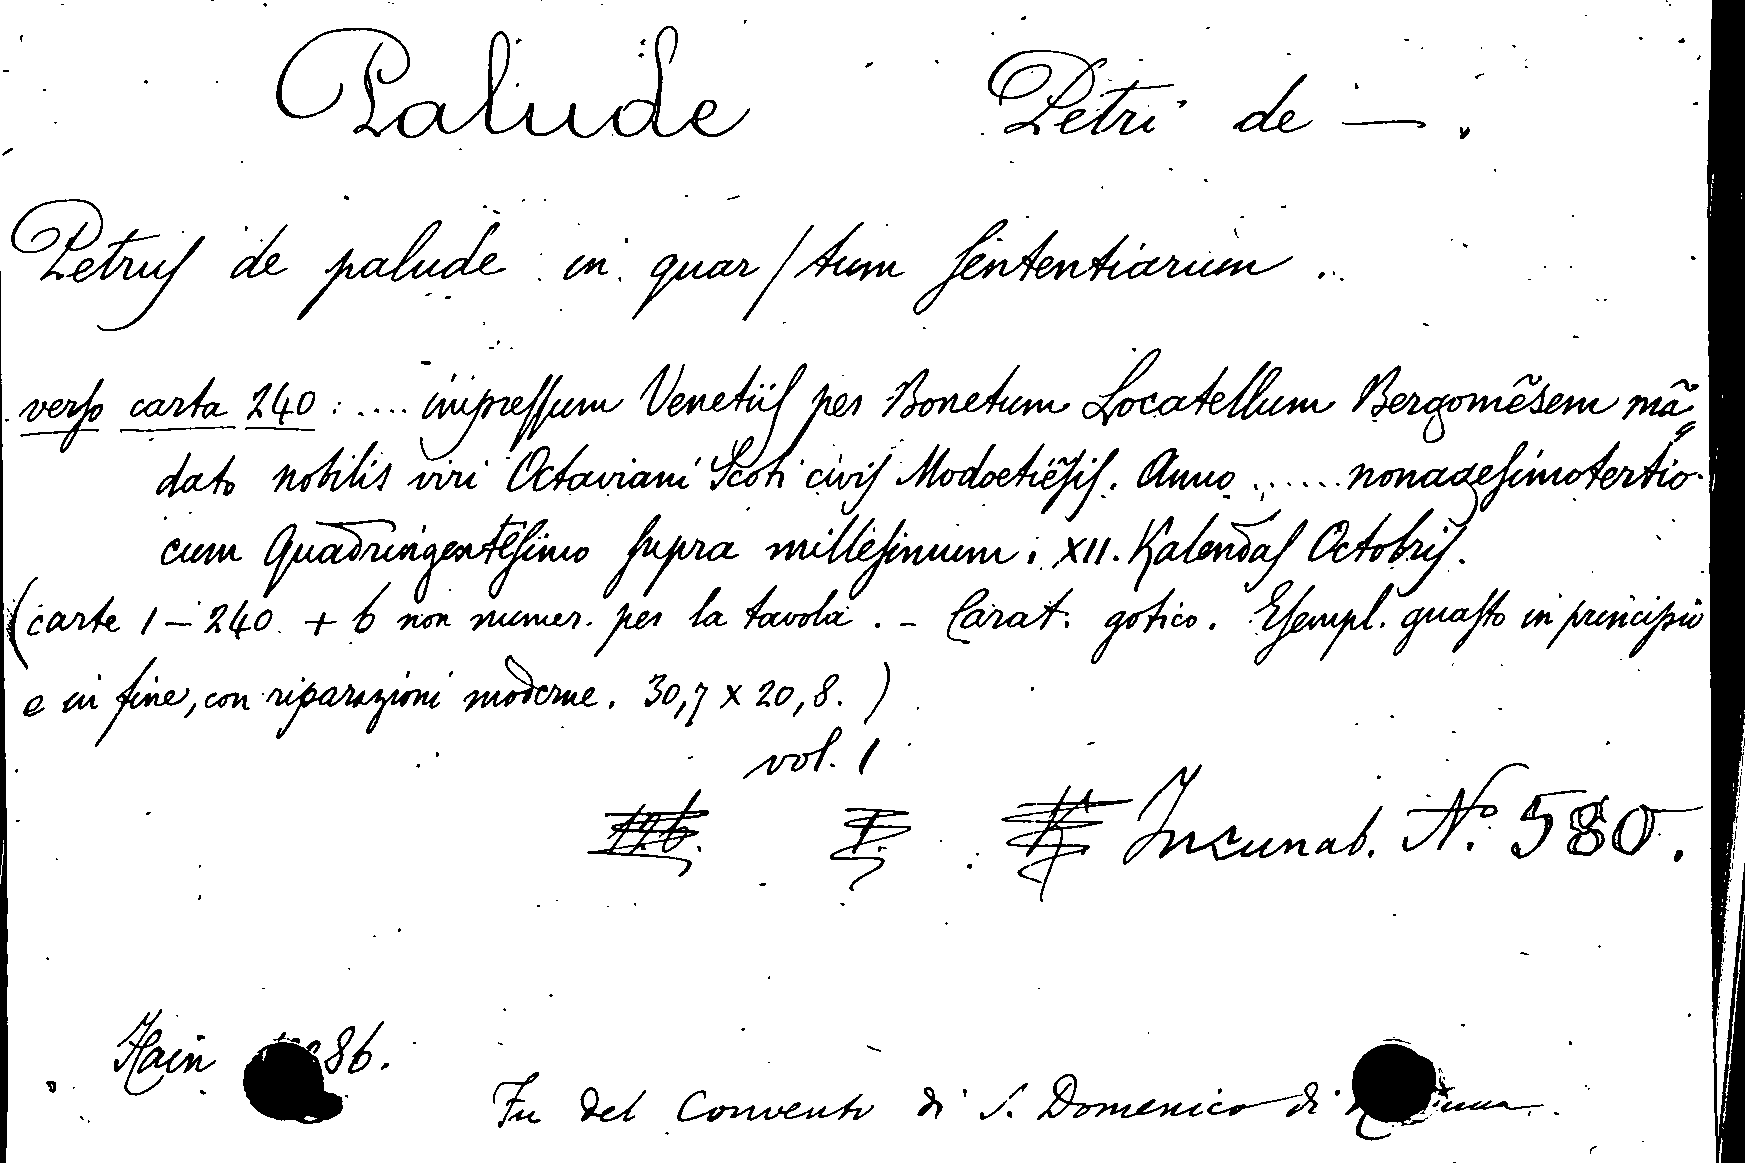 Palude Petri de —.
Petrus de palude in quar/tum sententiarum ..
verso carta 240 : .... impressum Venetiis per Bonetum Locatellum Bergomẽsem mã„
dato nobilis viri Octaviani Scoti civis Modoetiẽsis. Anno ...... nonagesimotertio
cum Quadringentesimo supra millesimum. XII. Kalendas Octobris.
(carte 1 – 240 + 6 non numer. per la tavola. – Carat. gotico. Esempl. guasto in principio
e in fine, con riparazioni moderne. 30,7 x 20,8. )
vol. 1
Incunab. Nº 580.
Hain 86.
Fu del Convento di S. Domenico di